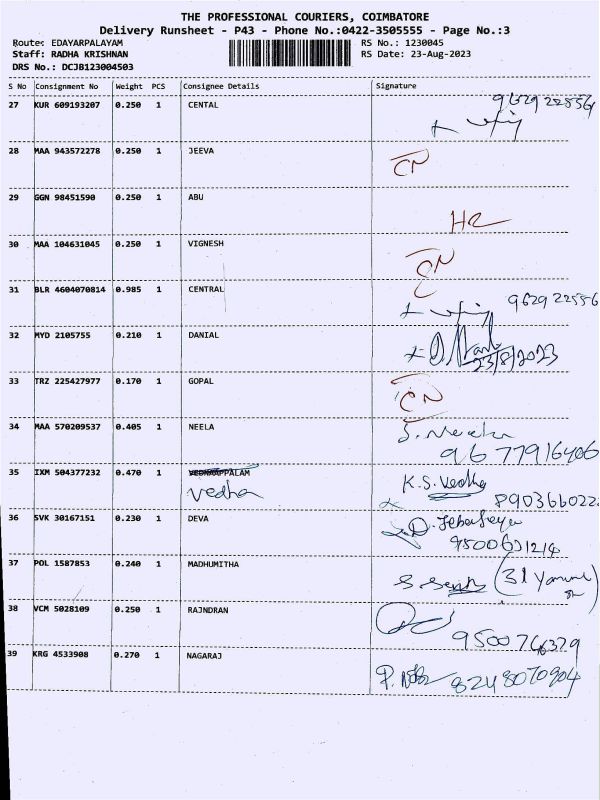 THE PROFESSIONAL COURIERS, COIMBATORE
Delivery Runsheet - P43 - Phone No.:0422-3505555 - Page No.:3
Route: EDAYARPALAYAM RS No.: 1230045
Staff: RADHA KRISHNAN RS Date: 23-Aug-2023
DRS No.: DCJB123004503
S No Consignment No Weight PCS Consignee Details Signature
27 KUR 609193207 0.250 1 CENTAL
28 MAA 943572278 0.250 1 JEEVA CN
29 GGN 98451590 0.250 1 ABU
30 MAA 104631045 0.250 1 VIGNESH
31 BLR 4604070814 0.985 1 CENTRAL 962922556
32 MYD 2105755 0.210 1 DANIAL 23/8/2023
33 TRZ 225427977 0.170 1 GOPAL CN
34 MAA 570209537 0.405 1 NEELA S. Neela
9677916406
35 IXM 504377232 0.470 1 K.S. Vedha
Vedha 890366022
36 SVK 30167151 0.230 1 DEVA
9500691214
37 POL 1587853 0.240 1 MADHUMITHA
38 VCM 5028109 0.250 1 RAJNDRAN
9500766379
39 KRG 4533908 0.270 1 NAGARAJ 8248070904